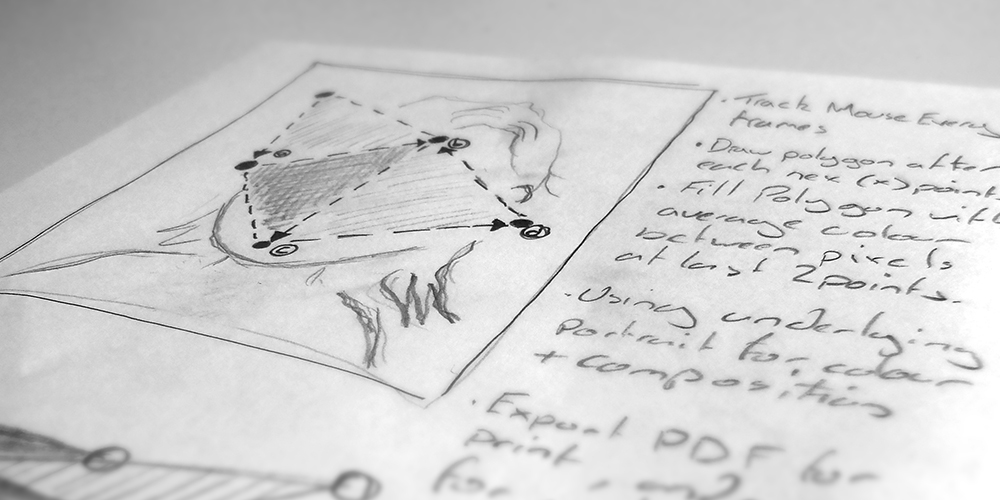 · Track Mouse Every
frames
· Draw polygon after
each new (x) point
· Fill Polygon with
average colour
between pixels
at last 2 points.
· Using underlying
Portrait for colour
+ composition
· Export PDF for
print
for